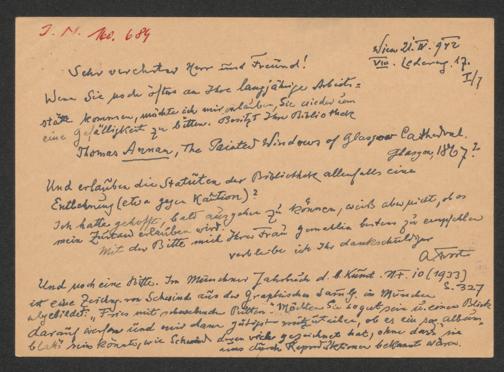 J. N. No. 684
Wien 21. IV. 942
VIII. Ledererg. 17.
I/7
Sehr verehrter Herr und Freund!
Wenn Sie noch öfters an Ihre langjährige Arbeits-
stätte kommen, möchte ich mir erlauben, Sie wieder um
eine Gefälligkeit zu bitten. Besitzt Ihre Bibliothek
Thomas Annan, The Painted Windows of Glasgow Cathedral.
Glasgow, 1867?
Und erlauben die Statuten der Bibliothek allenfalls eine
Entlehnung (etwa gegen Kaution)?
Ich hatte gehofft, bald ausgehen zu können, weiß aber nicht, ob es
mein Zustand erlauben wird.
Mit der Bitte mich Ihrer Frau Gemahlin bestens zu empfehlen
verbleibe ich Ihr dankschuldiger
Und noch eine Bitte. Im Münchner Jahrbuch d. b. Kunst. N.F. 10 (1933)
S. 327
ist eine Zeichng. von Schwind aus der Graphischen Sammlg. in München
abgebildet: "Fries mit schwebenden Putten." Möchten Sie so gut sein u. einen Blick
darauf werfen und mir dann gütigst mitzuteilen, ob es ein
sein könnte, wie Schwind deren viele gezeichnet hat, ohne dass sie
uns durch Reproduktionen bekannt wären.